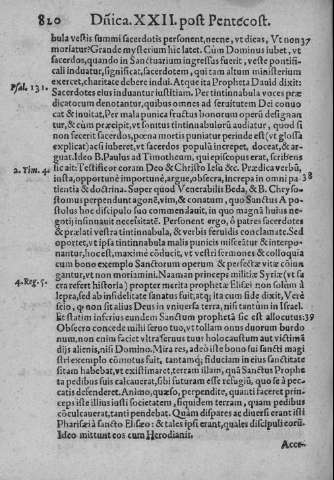 820 Dñica. XXII. post Pentecost.
bula vestis summi sacerdotis personent, necne, vt dicas, Vt non 37
moriatur? Grande mysterium hic latet. Cùm Dominus iubet, vt
sacerdos, quando in Sanctuarium ingressus fuerit, veste pontifi-
cali induatur, significat, sacerdotem, qui tam altum ministerium
exercet, charitate debere indui. Atque ita Propheta Dauid dixit:
Psal. 131. Sacerdotes eius induantur iustitiam. Per tintinnabula voces præ
dicatorum denotantur, quibus omnes ad seruitutem Dei conuo
cat & inuitat, Per mala punica fructus bonorum operũ designan
tur, & cùm præcipit, vt sonitus tintinnabulorũ audiatur, quòd si
non fecerit sacerdos, pœna mortis puniatur perinde est (vt glossa
explicat) acsi iuberet, vt sacerdos populũ increpet, doceat, & ar-
guat. Ideo B. Paulus ad Timotheum, qui episcopus erat, scribens
2. Tim. 4. sic ait: Testificor coram Deo & Christo Iesu &c. Prædica verbũ,
insta, opportunè importunè, argue, obsecra, increpa in omni pa 38
tientia & doctrina. Super quod Venerabilis Beda, & B. Chryso-
stomus perpendunt agonẽ, vim, & conatum, quo Sanctus A po-
stolus hoc discipulo suo commendauit, in quo magnã huius ne-
gotij insinnauit necessitatẽ. Personent ergo, ô patres sacerdotes
& prælati vestra tintinnabula, & verbis feruidis conclamate. Sed
oportet, vt ipsa tintinnabula malis punicis misceãtur & interpo-
nantur, hoc est, maximè cõducit, vt vestri sermones & colloquia
cum bono exemplo Sanctorum operum & perfectæ vitæ coniun
gantur, vt non moriamini. Naaman princeps militiæ Syriæ (vt sa
4. Reg. 5. cra refert historia) propter merita prophetæ Elisæi non solùm à
lepra, sed ab infidelitate sanatus fuit, atq; ita cum fide dixit, Verè
scio, q̃ non sit alius Deus in vniuersa terra, nisi tantùm in Israel.
Et statim inferius eundem Sanctum prophetã sic est allocutus. 39
Obsecro concede mihi seruo tuo, vt tollam onus duorum burdo
num, non enim faciet vltra seruus tuus holocaustum aut victimã
dijs alienis, nisi Domino. Mira res, adeò iste bono sui sancti magi
stri exemplo cõmotus fuit, tantamq; fiduciam in eius sanctitate
sitam habebat, vt existimaret, terram illam, quã Sanctus Prophe
ta pedibus suis calcauerat, sibi suturam esse refugiũ, quo se à pec-
catis defenderet. Animo, quæso, perpendite, quanti faceret prin-
ceps iste illius iusti societatem, siquidem terram, quam pedibus
cõculcauerat, tanti pendebat. Quàm dispares ac diuersi erant isti
Pharisæi à sancto Elisæo: & tales ipsi erant, quales discipuli corũ.
Ideo mittunt eos cum Herodianis.
Acce-